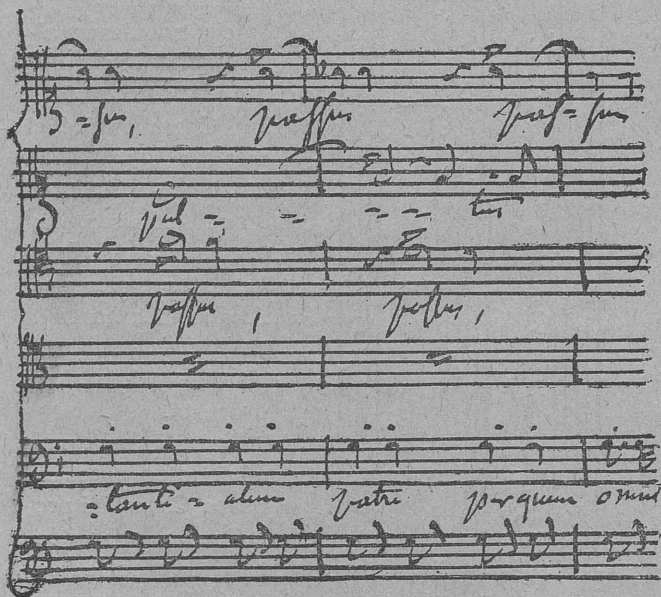 =sus, passus pas=sus
pul = = = = tus
passus, passus,
=tanti=alem patri per quem omni